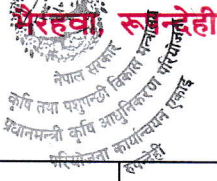 भैरहवा, रूपन्देही
नेपाल सरकार
कृषि तथा पशुपन्छी विकास मन्त्रालय
प्रधानमन्त्री कृषि आधुनिकीकरण परियोजना
परियोजना कार्यान्वयन एकाई
रूपन्देही